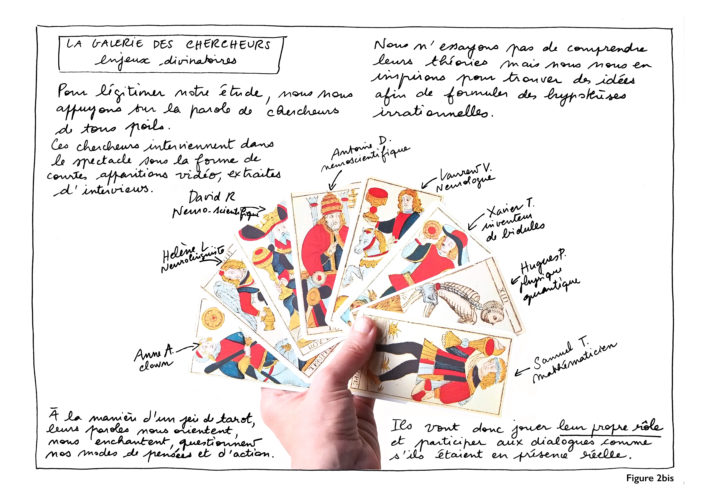 LA GALERIE DES CHERCHEURS
enjeux divinatoires
Pour légitimer notre étude, nous nous
appuyons sur la parole de chercheurs
de tous poils.
Ces chercheurs interviennent dans
le spectacle sous la forme de
courtes apparitions vidéo, extraites
d'interviews.
Nous n'essayons pas de comprendre
leurs théories mais nous nous en
inspirons pour trouver des idées
afin de formuler des hypothèses
irrationnelles.
David R
Neuro-scientifique
Antoine D.
neuroscientifique
Laurent V.
Neurologue
Xavier T.
inventeur
de bidules
Hélène L.
Neurolinguiste
Hugues P.
physique
quantique
Anne A.
clown
Samuel T.
mathématicien
À la manière d'un jeu de tarot,
leurs paroles nous orientent,
nous enchantent, questionnent
nos modes de pensées et d'action.
Ils vont donc jouer leur propre rôle
et participer aux dialogues comme
s'ils étaient en présence réelle.
Figure 2bis